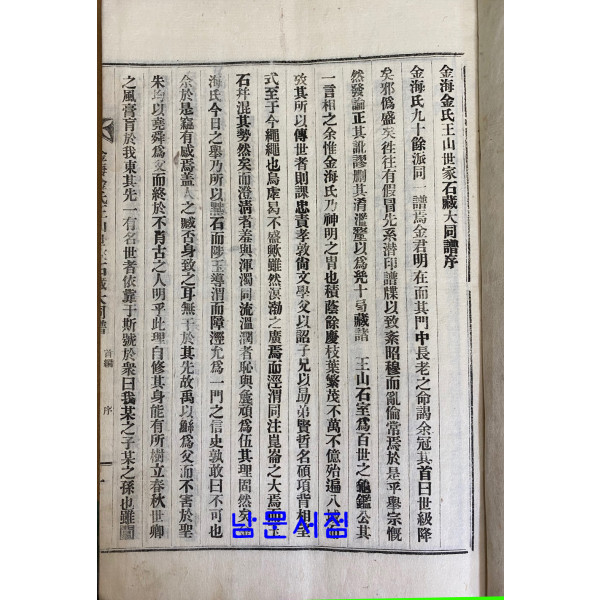 金海金氏王山世家石藏大同譜序
金海氏九十餘派同一譜焉金君明在而其門中長老之命謁余冠其首曰世級降
矣邪僞盛矣徃徃有假冒先系潜印譜牒以致紊昭穆而亂倫常焉於是乎擧宗慨
然發論正其訛謬刪其淆濫鼇以爲凳十号藏諸　王山石室爲百世之龜鑑公其
一言相之余惟金海氏乃神明之冑也積蔭餘慶枝葉繁茂不萬不億殆遍八域而
攷其所以傳世者則課忠責孝敦尙文學父以詔子兄以勗弟賢哲名碩項背相望
式至于今繩繩也烏虖曷不盛歟雖然溟渤之廣焉而涇渭同注崑崙之大焉而玉
石幷混其勢然矣而澄淸者羞與渾濁同流溫潤者恥與麤頑爲伍其理固然矣金
海氏今日之擧乃所以黜石而陟玉導渭而障涇允爲一門之信史孰敢曰不可也
余於是竊有感焉盖人之臧否身致之耳無干於其先故禹以鯀爲父而不害於聖
朱均以堯舜爲父而終於不肖古之人明乎此理自修其身能有所樹立春秋世卿
之風膏肓於我東其先一有名世者依靠于斯號於衆曰我某之子某之孫也雖闒
金海金氏王山世家石藏大同譜
首編
序
一
남문서점